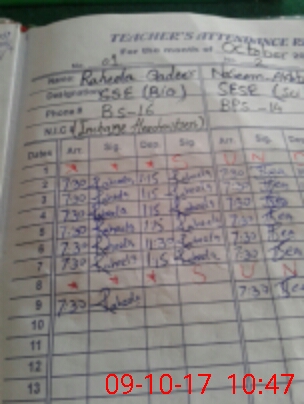 TEACHER'S ATTENDANCE RE
For the month of October 20
No 01
Name: Raheela Qadeer Naseem Akh
Designation SSE (Bio) SESE (Sc
Phone # BS-16 BPS-14
N.I.C #
Dates Arr. Sig. Dep. Sig. Arr. Sig.
1 * * * S U N D
2 7:30 Raheela 1:15 Raheela 7:30
3 7:30 Raheela 1:15 Raheela 7:30
4 7:30 Raheela 1:15 Raheela 7:30
5 7:30 Raheela 1:15 Raheela 7:30
6 7:30 Raheela 11:30 Raheela 7:30
7 7:30 Raheela 1:15 Raheela 7:30
8 * * * S U N
9 7:30 Raheela 7:30
10
11
12
13
09-10-17 10:47